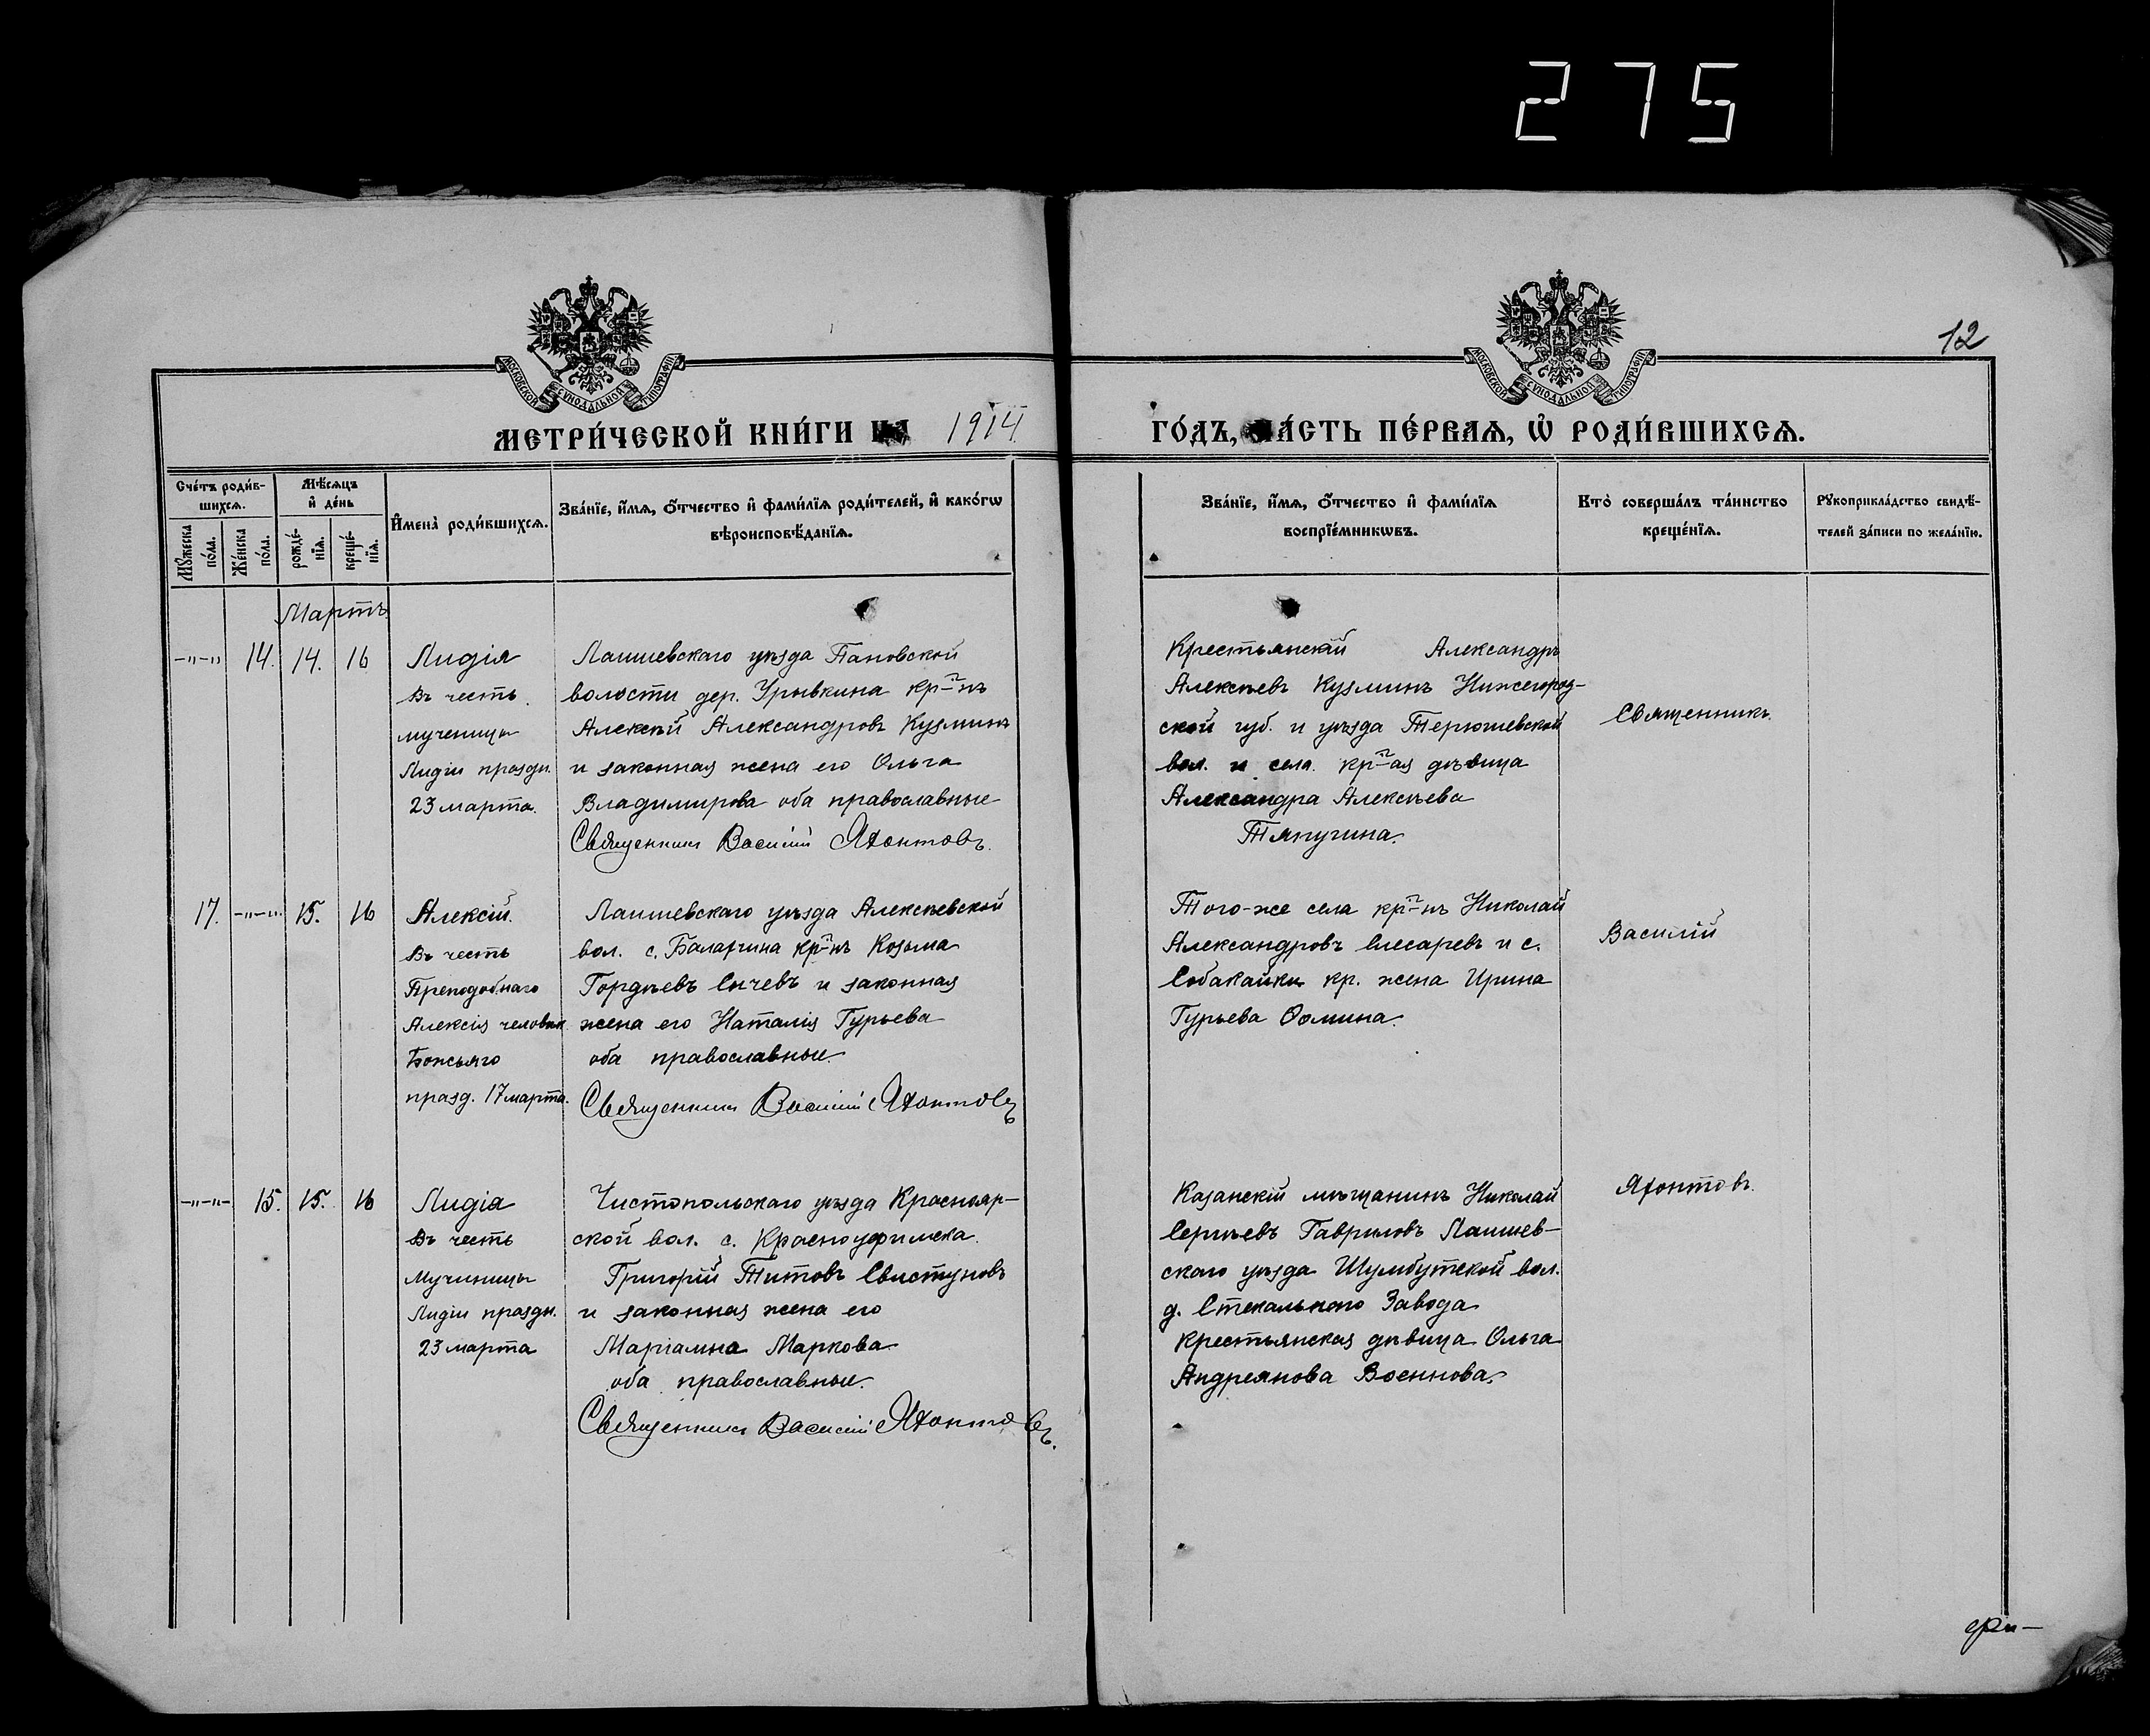 275
12
МОСКОВСКОЙ СѴНОДАЛЬНОЙ ТИПОГРАФІИ
МОСКОВСКОЙ СѴНОДАЛЬНОЙ ТИПОГРАФІИ
МЕТРИ́ЧЕСКОЙ КНИ́ГИ НА 1914 ГО́ДЪ, ЧА́СТЬ ПЕ́РВАѦ, Ѽ РОДИ́ВШИХСѦ.
Сче́тъ роди́в-
шихсѧ.
Мꙋ́жеска
по́ла.
Же́нска
по́ла.
Мѣ́сѧцъ
и҆ де́нь
рожде́-
нїѧ.
креще́-
нїѧ.
И҆мена̀ роди́вшихсѧ.
Зва́нїе, и҆́мѧ, ѻ҆́тчество и҆ фами́лїѧ роди́телей, и҆ како́гѡ
вѣроисповѣ́данїѧ.
Зва́нїе, и҆́мѧ, ѻ҆́тчество и҆ фами́лїѧ
воспрїе́мникѡвъ.
Кто̀ соверша́лъ та́инство
креще́нїѧ.
Рꙋкоприкла́дство свидѣ́-
телей за́писи по жела́нїю.
Мартъ
-"-" 14. 14. 16
Лидія
Въ честь
мученицы
Лидіи праздн.
23 марта.
Лаишевскаго уѣзда Пановской
волости дер. Урывкина кр-нъ
Алексѣй Александровъ Кузминъ
и законная жена его Ольга
Владимирова оба православные
Священникъ Василій Яхонтовъ.
Крестьянскій Александръ
Алексѣевъ Кузминъ Нижегород-
ской губ. и уѣзда Терюшевской
вол. и села кр-ая дѣвица
Александра Алексѣева
Тяпугина.
Священникъ
17. -"-" 15. 16
Алексій.
Въ честь
Преподобнаго
Алексія человѣк
Божьяго
празд. 17 марта.
Лаишевскаго уѣзда Алексѣевской
вол. с. Балагчина кр-нъ Козьма
Гордѣевъ Сычевъ и законная
жена его Наталія Гурьева
оба православные.
Священникъ Василій Яхонтовъ
Того-же села кр-нъ Николай
Александровъ Слесаревъ и с.
Собакайки кр. жена Ирина
Гурьева Ѳомина.
Василій
-"-"- 15. 15. 16
Лидія
Въ честь
Мученицы
Лидіи праздн.
23 марта
Чистопольскаго уѣзда Краснояр-
ской вол. с. Красноуфимска
Григорій Титовъ Свистуновъ
и законная жена его
Маріамна Маркова
оба православные.
Священникъ Василій Яхонтовъ.
Казанскій мѣщанинъ Николай
Сергѣевъ Гавриловъ Лаишев-
скаго уѣзда Шумбутской вол.
д. Стекальнаго Завода
крестьянская дѣвица Ольга
Андреянова Военнова.
Яхонтовъ.